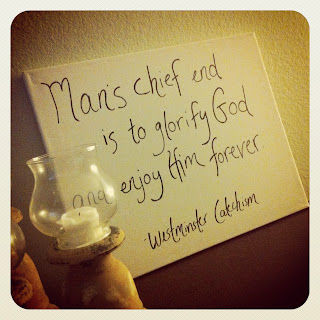 Man's chief end
is to glorify God
and enjoy Him forever
-Westminster Catechism